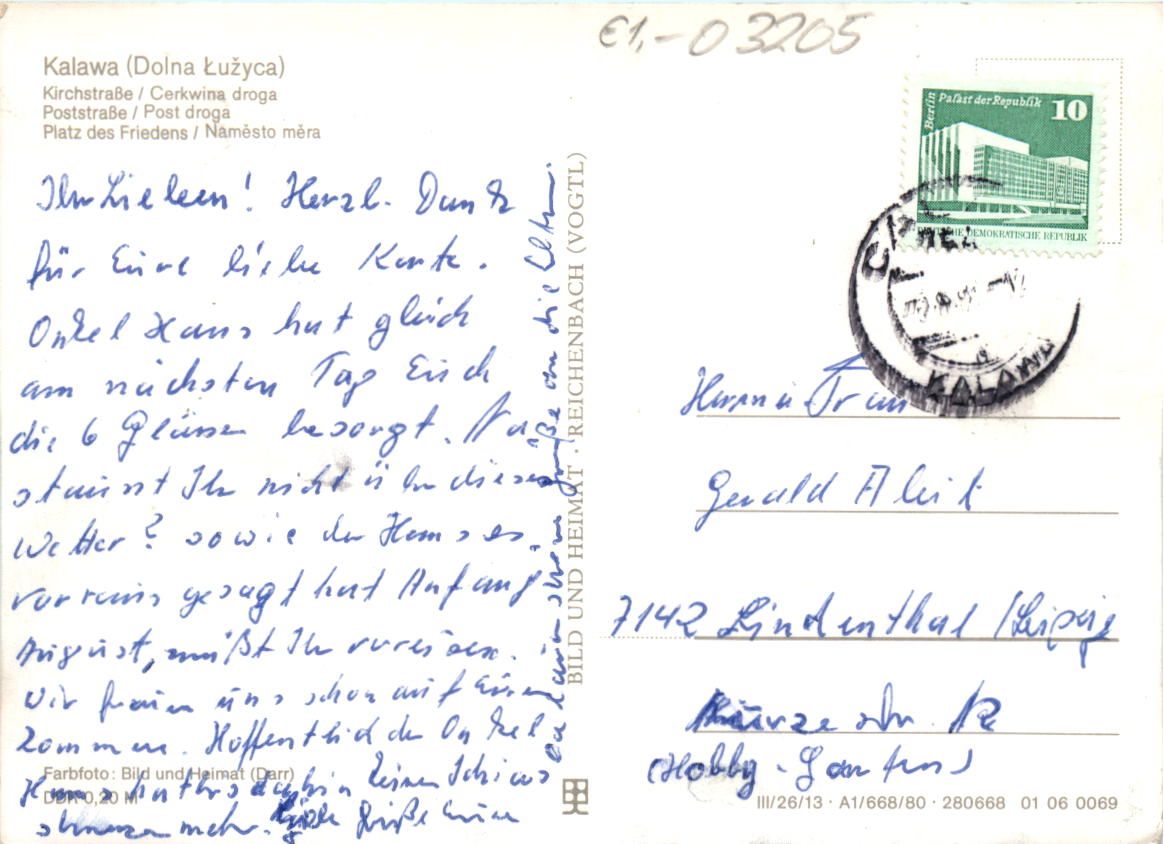 €1,- 03205
Kalawa (Dolna Łužyca)
Kirchstraße / Cerkwina droga
Poststraße / Post droga
Platz des Friedens / Naměsto měra
Ihr Lieben! Herzl. Dank
für Eure liebe Karte.
Onkel Hans hat gleich
am nächsten Tag Euch
die 6 Gläser besorgt. Na
staunst Ihr nicht über dieses
Wetter? sowie der Hans es
vorraus gesagt hat Anfang
August, müßt Ihr verreisen.
Wir freuen uns schon auf Euer
kommen. Hoffentlich der Onkel
Hans hat bis dahin keinen Ischias
schmerzen mehr. Liebe Grüße Eure
Grüße an die Eltern.
Farbfoto: Bild und Heimat (Darr)
DDR 0,20 M
BILD UND HEIMAT · REICHENBACH (VOGTL)
Berlin Palast der Republik 10
DEUTSCHE DEMOKRATISCHE REPUBLIK
KALAWA
Herrn u Frau
Gerald
7142 Lindenthal / Leipzig
Kurze str. 12
(Hobby-Gartens)
III/26/13 · A1/668/80 · 280668 01 06 0069